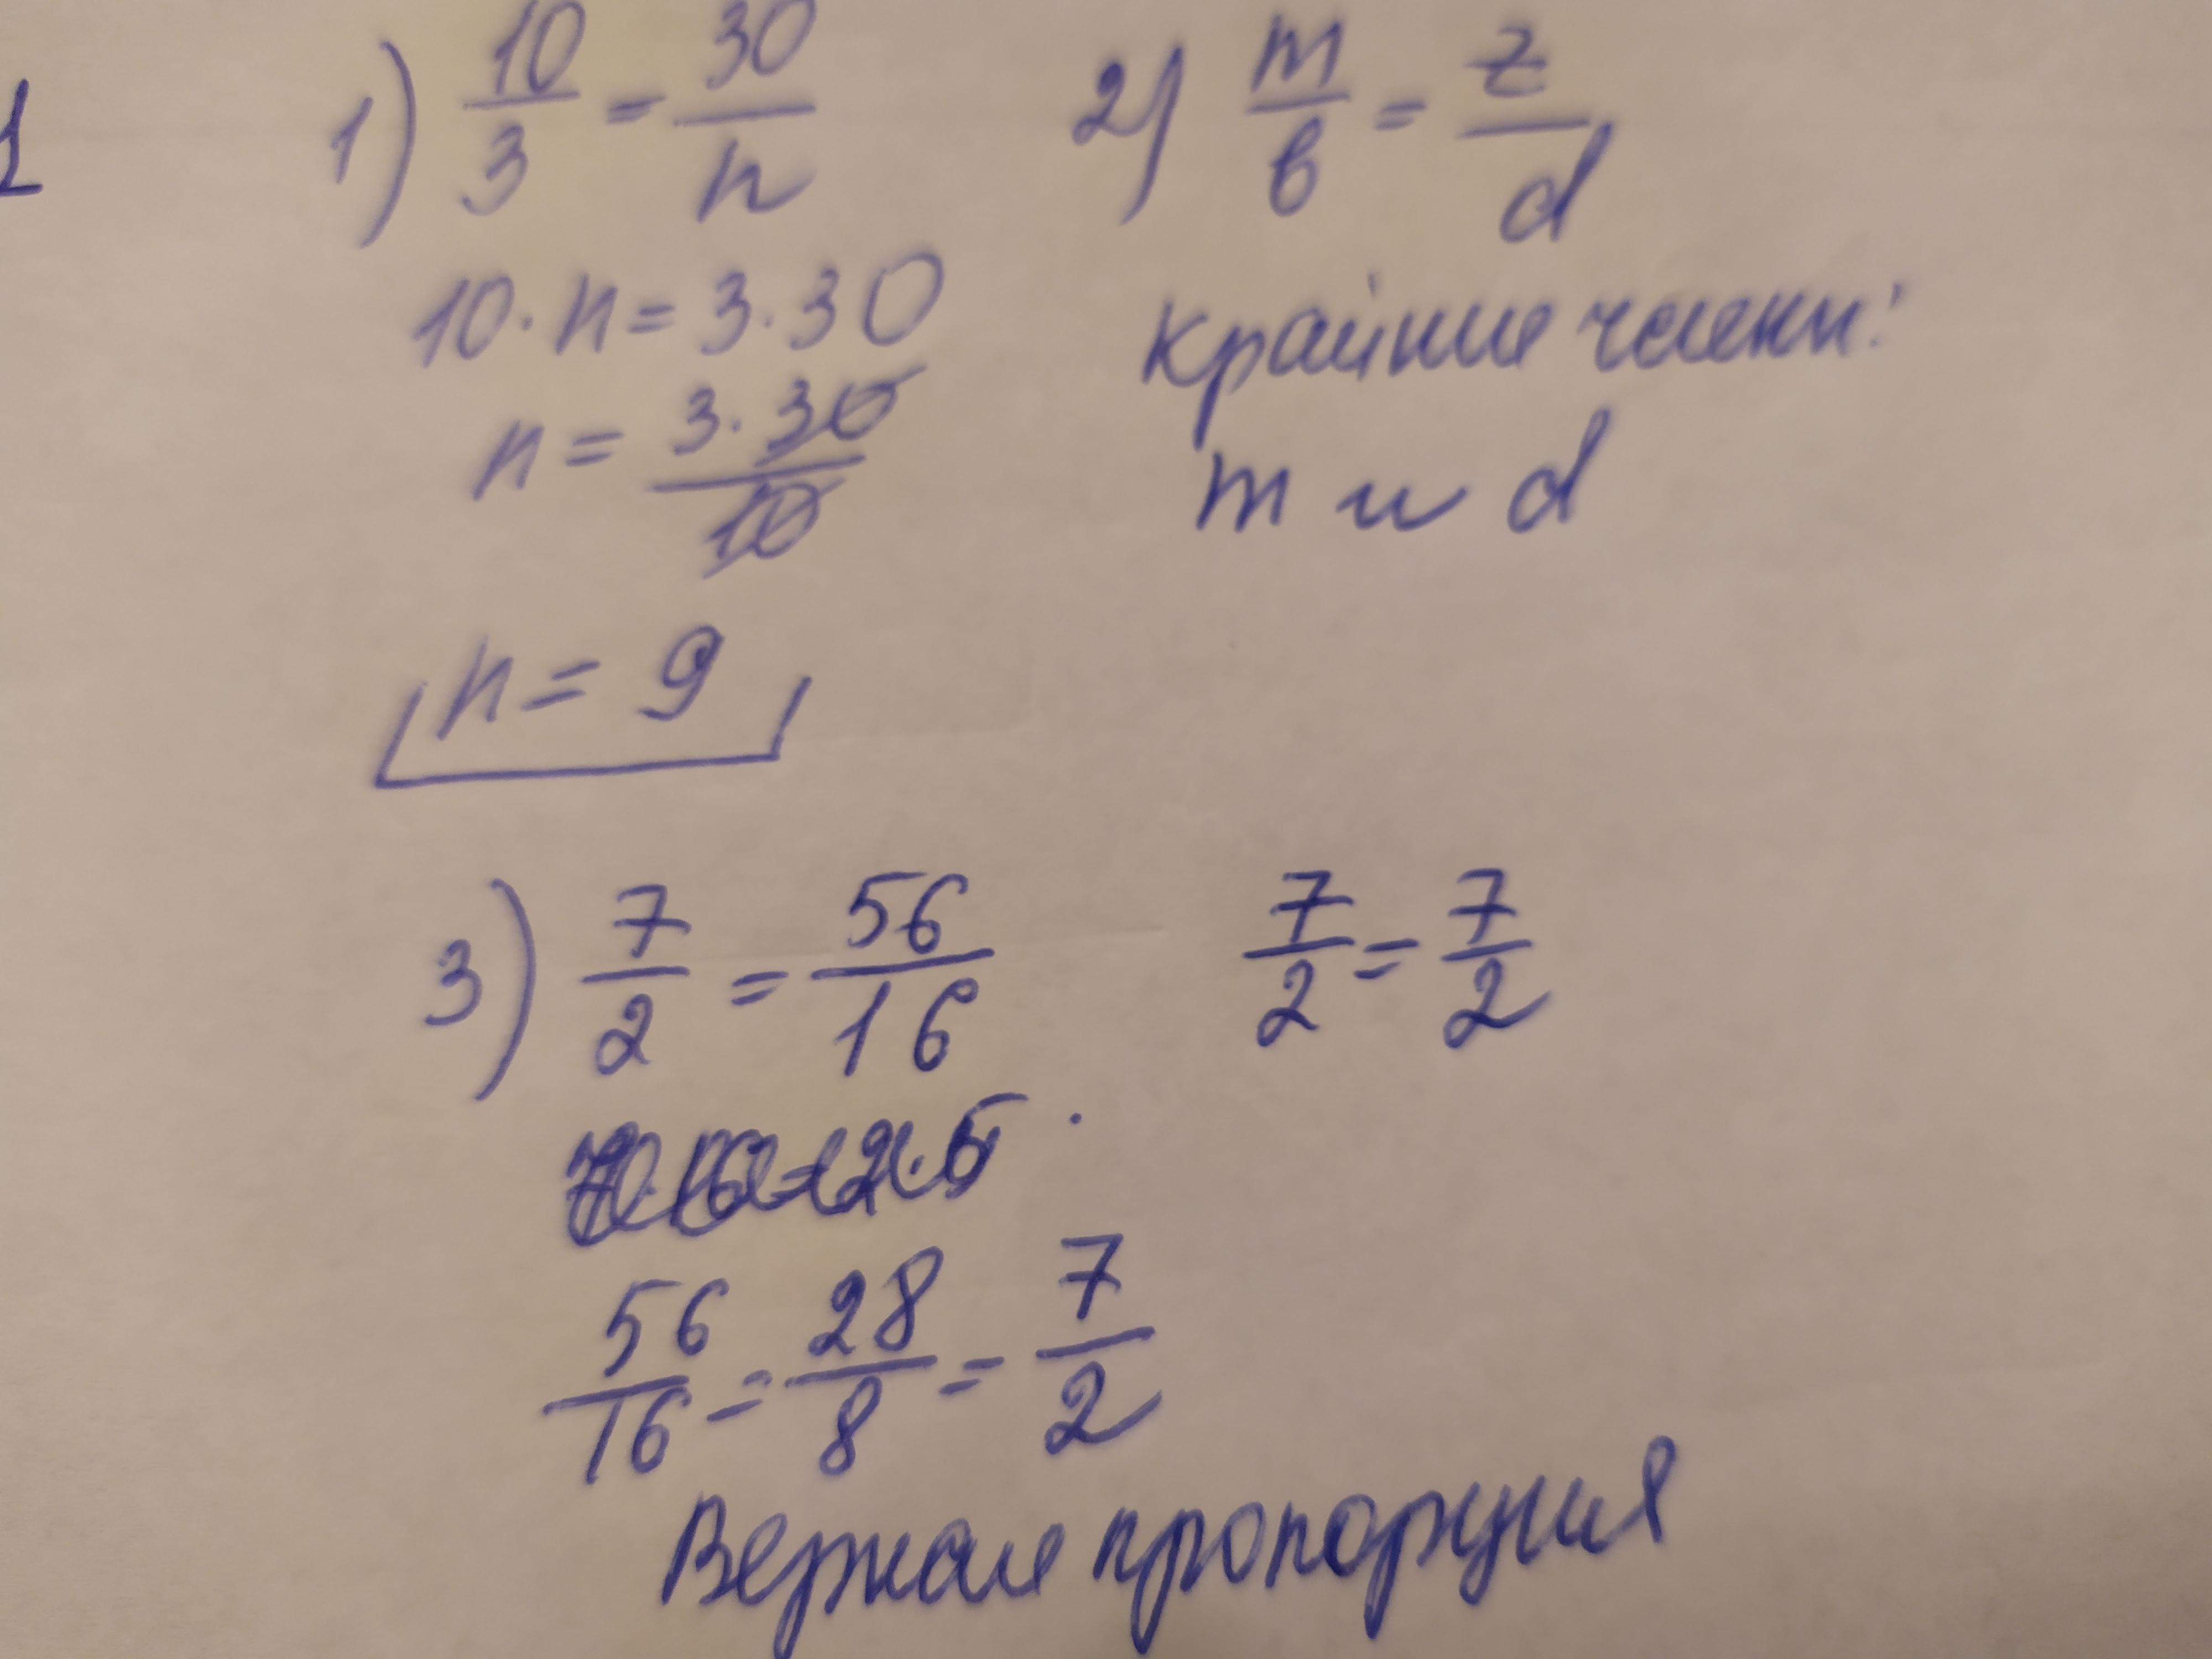 1
1) 10/3 = 30/n
10 · n = 3 · 30
n = 3 · 30/10
n = 9
2) m/b = z/d
крайние члены:
m и d
3) 7/2 = 56/16
7/2 = 7/2
56/16 = 28/8 = 7/2
Верная пропорция